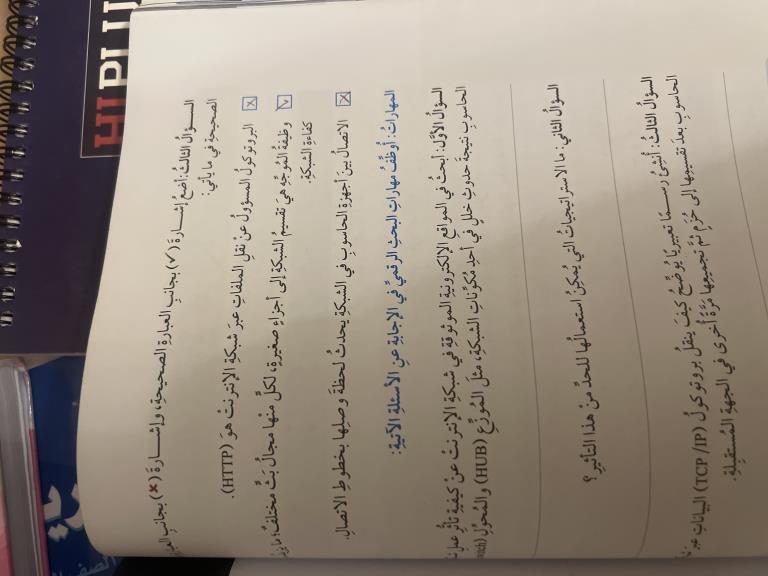 HI PLU
السؤالُ الثالثُ: أضعُ إشارةَ (✓) بجانبِ العبارةِ الصحيحةِ، وإشارةَ (×) بجانبِ
الصحيحةِ في ما يأتي:
البروتوكولُ المسؤولُ عنْ نقلِ الملفاتِ عبرَ شبكةِ الإنترنتْ هوَ (HTTP).
وظيفةُ الموجِّهِ هيَ تقسيمُ الشبكةِ إلى أجزاءٍ صغيرةٍ، لكلٍّ منْها مجالُ بَثٍّ مختلفٌ؛
كفاءةِ الشبكةِ.
الاتصالُ بينَ أجهزةِ الحاسوبِ في الشبكةِ يحدثُ لحظةَ وصلِها بخطوطِ الاتصالِ.
المهاراتُ: أُوظِّفُ مهاراتِ البحثِ الرقميِّ في الإجابةِ عنِ الأسئلةِ الآتيةِ:
السؤالُ الأوَّلُ: أبحثُ في المواقعِ الإلكترونيةِ الموثوقةِ في شبكةِ الإنترنتْ عنْ كيفيةِ تأثُّرِ
الحاسوبِ نتيجةَ حدوثِ خللٍ في أحدِ مُكوِّناتِ الشبكةِ، مثلَ المُوزِّعِ (HUB) والمُحوِّلِ
السؤالُ الثاني: ما الاستراتيجياتُ التي يُمكِنُ استعمالُها للحدِّ منْ هذا التأثيرِ؟
السؤالُ الثالثُ: أُنشِئُ رسمًا تعبيريًّا يُوضِّحُ كيفَ ينقلُ بروتوكولُ (TCP/IP) البياناتِ عبرَ
الحاسوبِ بعدَ تقسيمِها إلى حُزَمٍ ثمَّ تجميعِها مَرَّةً أُخرى في الجهةِ المُستقبِلةِ.